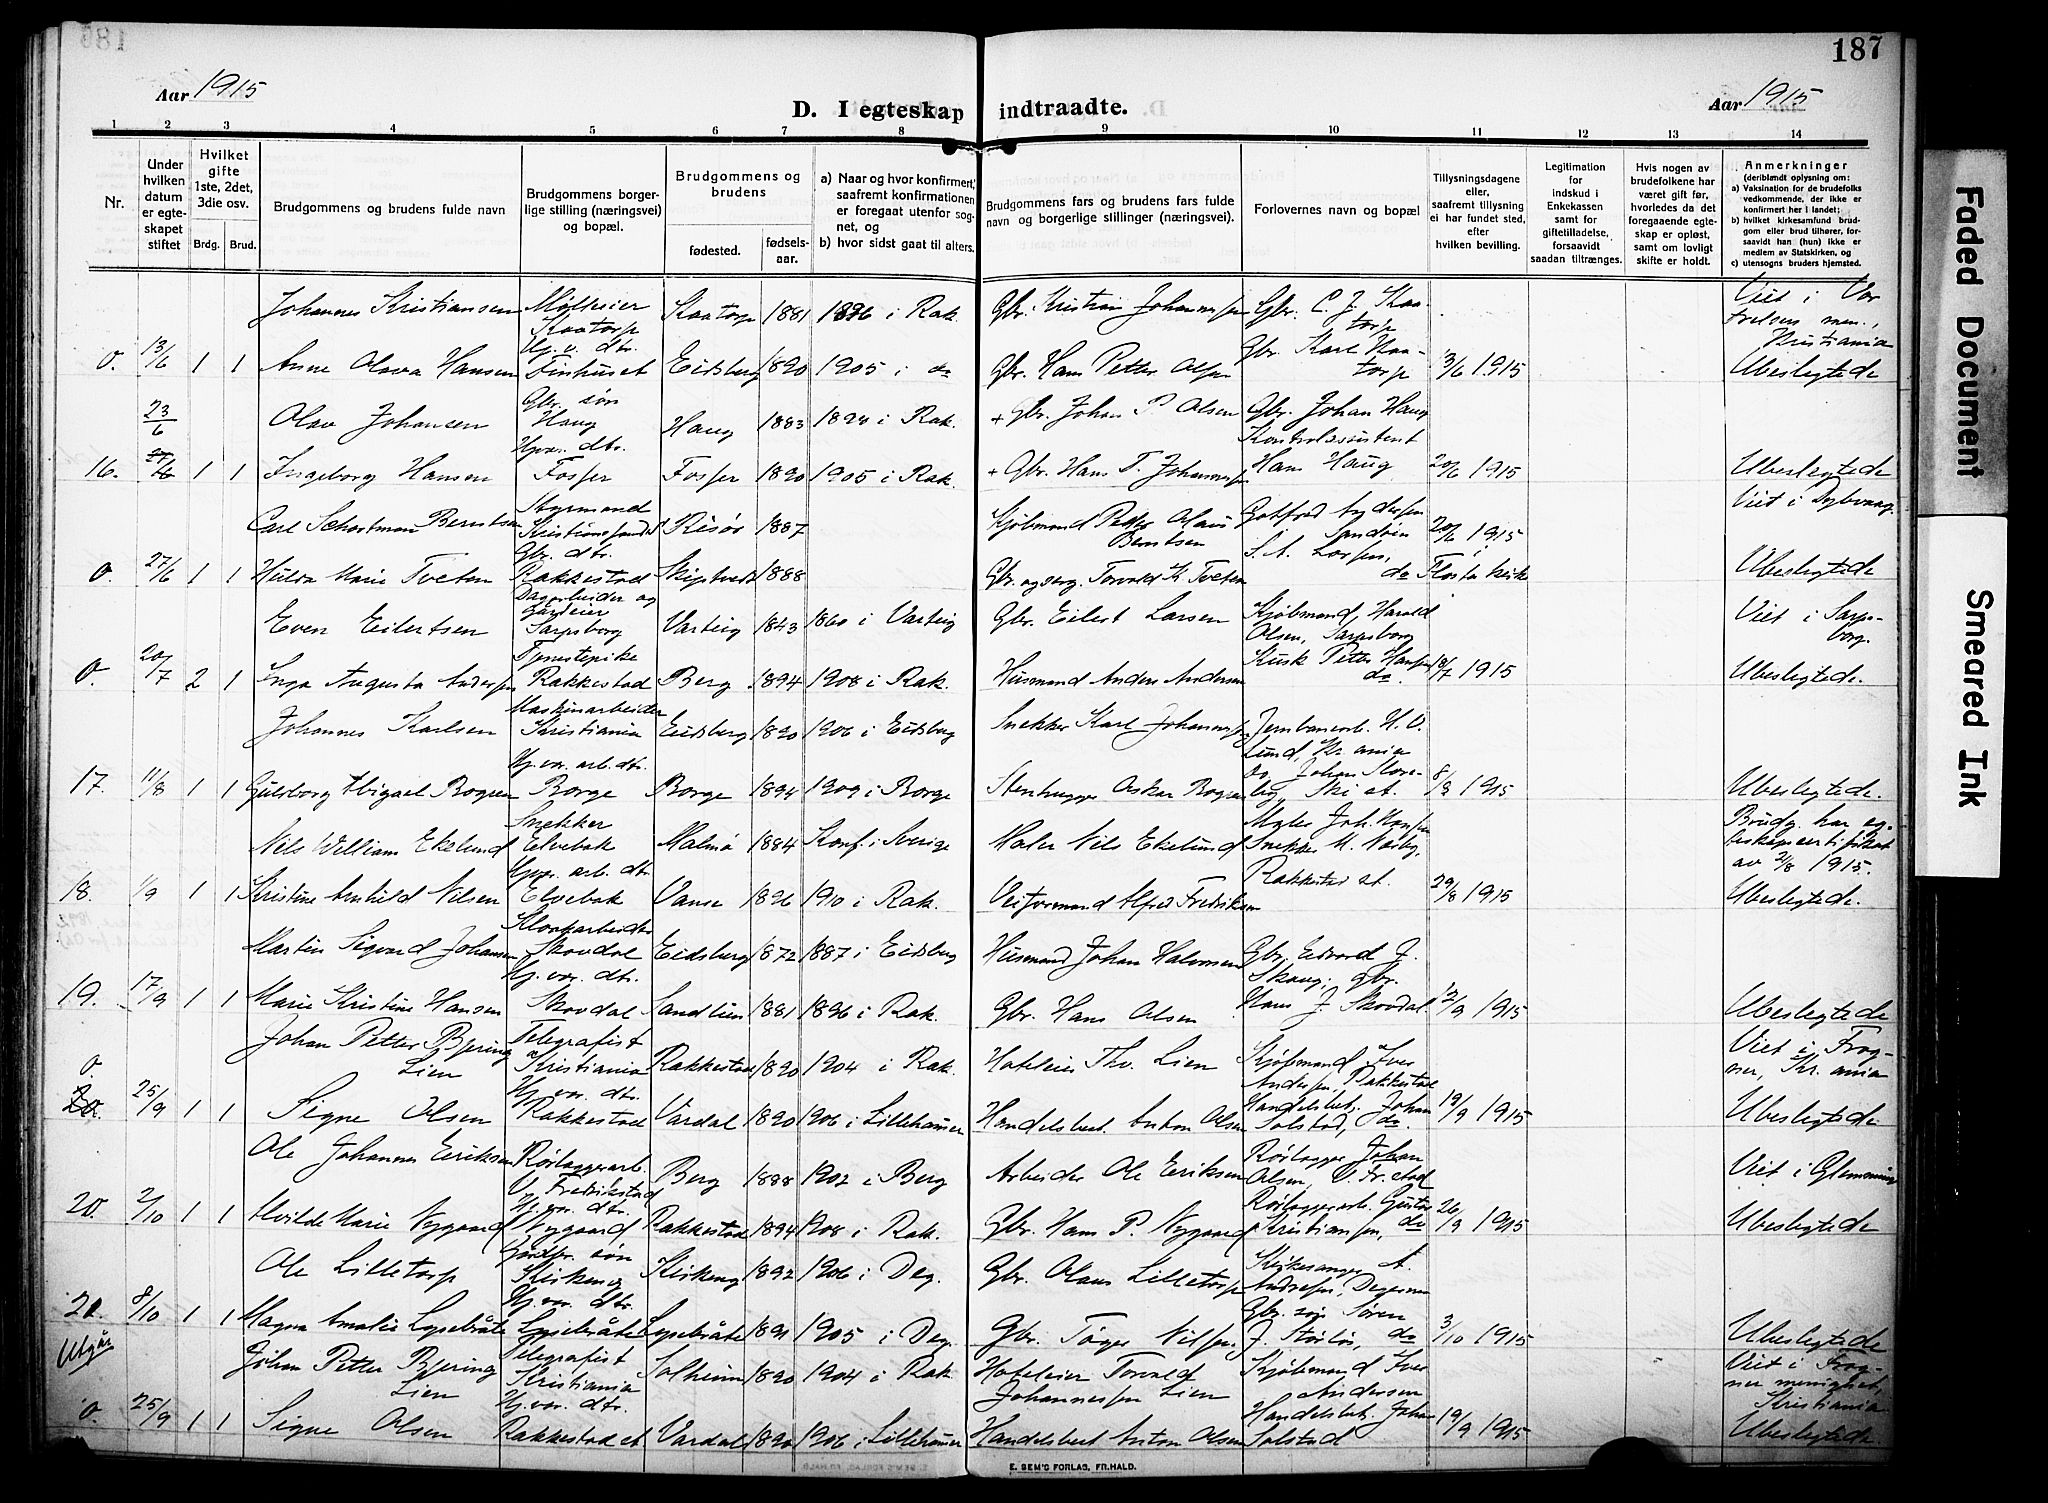 187
Aar 1915
D. I egteskap indtraadte.
Aar 1915
1 2 3 4 5 6 7 8 9 10 11 12 13 14
Nr.
Under hvilken datum er egteskapet stiftet
Hvilket gifte 1ste, 2det, 3die osv.
Brdg. Brud.
Brudgommens og brudens fulde navn
Brudgommens borgerlige stilling (næringsvei) og bopæl.
Brudgommens og brudens
fødested. fødselsaar.
a) Naar og hvor konfirmert, saafremt konfirmationen er foregaat utenfor sognet, og
b) hvor sidst gaat til alters.
Brudgommens fars og brudens fars fulde navn og borgerlige stillinger (næringsvei).
Forlovernes navn og bopæl
Tillysningsdagene eller, saafremt tillysning ei har fundet sted, efter hvilken bevilling.
Legitimation for indskud i Enkekassen samt for giftetilladelse, forsaavidt saadan tiltrænges.
Hvis nogen av brudefolkene har været gift før, hvorledes da det foregaaende egteskap er opløst, samt om lovligt skifte er holdt.
Anmerkninger (deriblandt oplysning om:
a) Vaksination for de brudefolks vedkommende, der ikke er konfirmert her i landet;
b) hvilket kirkesamfund brudgom eller brud tilhører, forsaavidt han (hun) ikke er medlem av Statskirken, og
c) utensogns bruders hjemsted.
Johannes Kristiansen Mølleeier Kaatorp Kaatorp 1881 1896 i Rak. Gbr. Kristian Johannesen Gbr. C. J. Kaatorp Viet i Vor Frelsers men., Kristiania
0. 13/6 1 1 Anne Olava Hansen Hj.v. dtr. Finhuset Eidsberg 1890 1905 i do Gbr. Hans Petter Olsen Gbr. Karl Kaatorp 13/6 1915 Ubeslegtede
23/6 Olav Johansen Gbr. søn Haug Haug 1883 1898 i Rak. + Gbr. Johan P. Olsen Gbr. Johan Haug
16. 1 1 Ingeborg Hansen Hj.v. dtr. Fosser Fosser 1890 1905 i Rak. + Gbr. Hans T. Johannesen Kontrolassistent Hans Haug 20/6 1915 Ubeslegtede
Carl Schartman Berntsen Styrmand Kristianssand Risør 1887 Kjøbmand Peder Olaus Berntsen Gotfred Andersen Sandvin 20/6 1915 i Viet i Dybvaag.
0. 27/6 1 1 Hulda Marie Tveten Gbr. dtr. Rakkestad Skiptvedt 1888 Gbr. og serg. Torvald K. Tveten S. A. Larsen, do Flosta kirke Ubeslegtede
Even Eilertsen Dagarbeider og gaardeier Sarpsborg Varteig 1843 1860 i Varteig Gbr. Eilert Larsen Kjøbmand Harald Olsen, Sarpsborg Viet i Sarpsborg.
0. 20/7 2 1 Inga Augusta Andersen Tjenestepike Rakkestad Berg 1894 1908 i Rak. Husmand Anders Andersen Kusk Petter Hansen do. 18/7 1915 Ubeslegtede.
Johannes Karlsen Maskinarbeider Kristiania Eidsberg 1890 1906 i Eidsberg Snekker Karl Johannesen Jernbanearb. H. O. Lund, Kr.ania
17. 11/8 1 1 Gulborg Abigael Rognen Hj.vær. arb. dtr. Borge Borge 1894 1909 i Borge Stenhugger Oskar Rognen do. Johan Skoreby, Ski st. 8/8 1915 Ubeslegtede.
Nils William Ekelund Snekker Eivebak Malmö 1884 Konf. i Sverige Maler Nils Ekelund Maler Joh. Hansen Brudg. har egteskapscertifikat av 2/8 1915.
18. 1/9 1 1 Kristine Arnhild Nilsen Hj.vær. arb. dtr. Elvebak Vanse 1896 1910 i Rak. Veiformand Alfred Fredriksen Snekker M. Næsby, Rakkestad st. 29/8 1915 Ubeslegtede.
Martin Sigvard Johansen Skovarbeider Skovdal Eidsberg 1872 1887 i Eidsberg Husmand Johan Halvorsen Gbr. Edvard J. Skaug, gbr.
19. 17/9 1 1 Marie Kristine Hansen Hj.vær. dtr. Skovdal Sandlien 1881 1896 i Rak. Gbr. Hans Olsen Hans J. Skovdal 12/9 1915 Ubeslegtede
Johan Petter Bjering Lien Telegrafist Kristiania Rakkestad 1890 1904 i Rak. Hoteleier Thv. Lien Kjøbmand Iver Andersen, Rakkestad Viet i Frogner, Kr.ania
0. 20. 25/9 1 1 Signe Olsen Hj.vær. dtr. Rakkestad Vardal 1890 1906 i Lillehamer Handelsbest. Anton Olsen Handelsbet. Johan Solstad, do. 19/9 1915 Ubeslegtede
Ole Johannes Eriksen Rørlæggerarb. V. Fredrikstad Berg 1888 1902 i Berg Arbeider Ole Eriksen Rørlægger Johan Olsen, V. Fr.stad Viet i Glemminge
20. 2/10 1 1 Hvilde Marie Nygaard Hj.vær. dtr. Nygaard Rakkestad 1894 1908 i Rak. Gbr. Hans P. Nygaard Rørlæggerarb. Gustav Kristiansen, do 26/9 1915 Ubeslegtede
Ole Lilletorp Gaardbr. søn Kirkeng Kirkeng 1892 1906 i Deg. Gbr. Olaus Lilletorp Kirkesanger A. Andresen, Degernes
21. 8/10 1 1 Magna Amalie Lysebråte Hj.vær. dtr. Lysebråte Lysebråte 1891 1905 i Deg. Gbr. Tørger Nilsen Gbr. søn Søren J. Størløs, do 3/10 1915 Ubeslegtede
Utgår
Johan Petter Bjering Lien Telegrafist Kristiania Solheim 1890 1904 i Rak. Hoteleier Torvald Johannesen Lien Kjøbmand Iver Andersen Viet i Frogner menighet, Kristiania
0. 25/9 1 1 Signe Olsen Hj.vær. dtr. Rakkestad st Vardal 1890 1906 i Lillehamer Handelsbest Anton Olsen Handelsbet. Johan Solstad 19/9 1915 Ubeslegtede.
E. SEM'S FORLAG, FR.HALD.
Faded Document
Smeared Ink